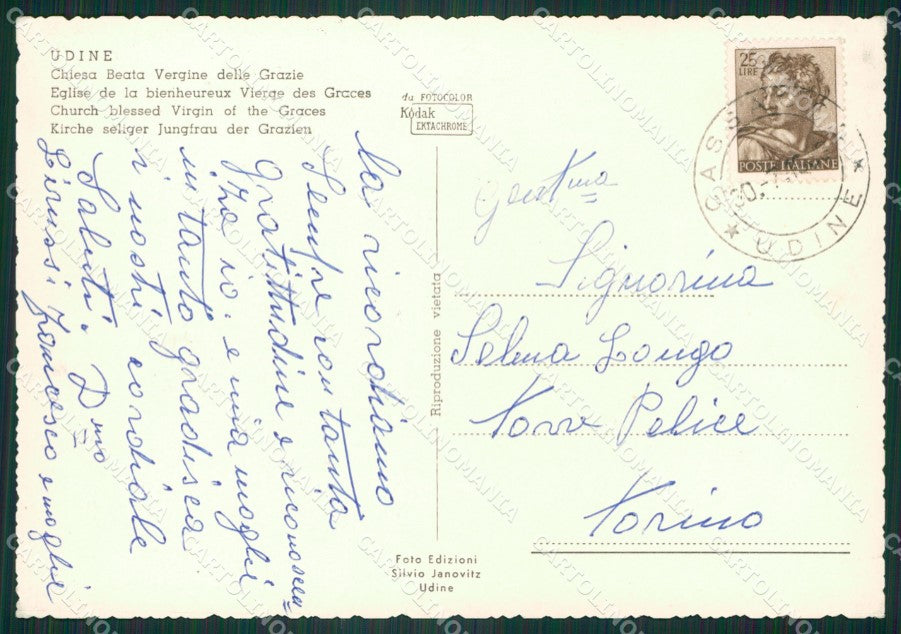 UDINE
Chiesa Beata Vergine delle Grazie
Eglise de la bienheureux Vierge des Graces
Church blessed Virgin of the Graces
Kirche seliger Jungfrau der Grazien
da FOTOCOLOR
Kodak
EKTACHROME
la ricordiamo
Sempre con tanta
Gratitudine e riconoscen=
za io e mia moglie
in tanto gradisca
i nostri cordiale
Saluti. D.mo
Francesco e moglie
Riproduzione vietata
Foto Edizioni
Silvio Janovitz
Udine
25
LIRE
POSTE ITALIANE
UDINE
Gent.ma
Signorina
Selma Longo
Torre Pelice
Torino
CARTOLINOMANIA